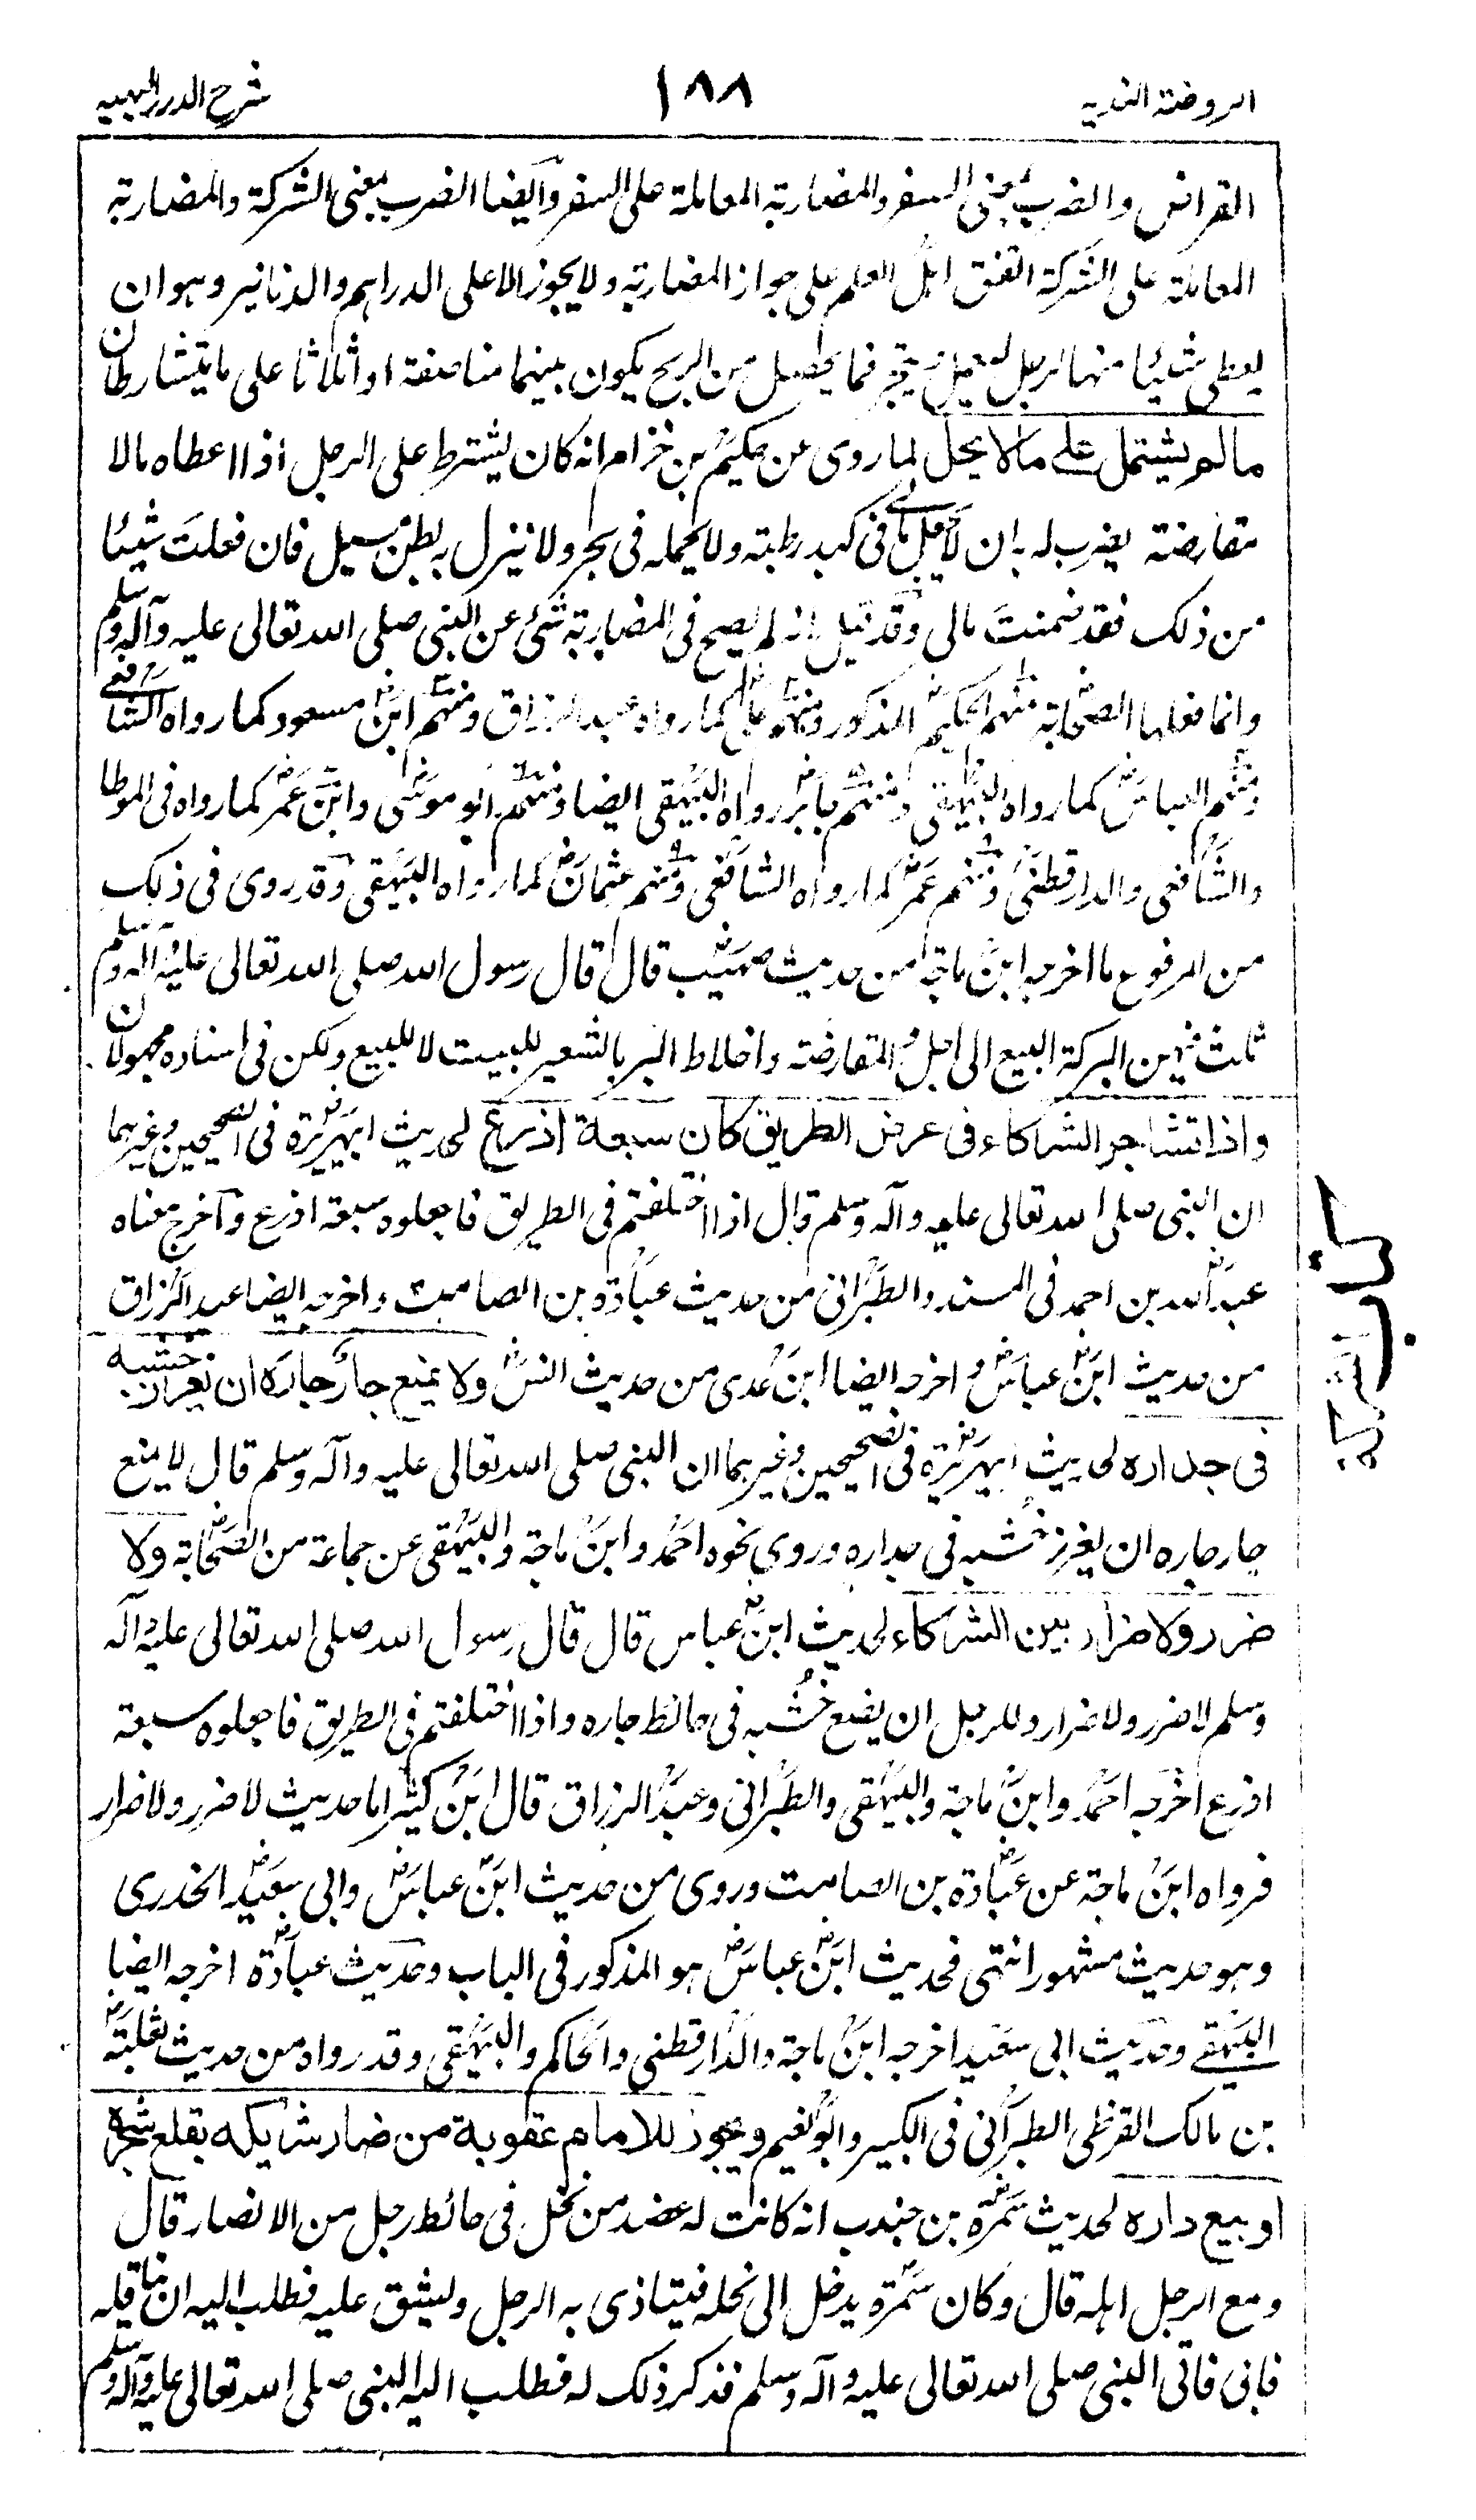 الروضة الندية ١٨٨ شرح الدرر البهية
القراض والضرب بمعنى السفر والمضاربة المعاملة على السفر وأيضا الضرب بمعنى الشركة والمضاربة
المعاملة على الشركة اتفق اهل العلم على جواز المضاربة ولا يجوز الا على الدراهم والدنانير وهو ان
يعطى شيئا منها لرجل ليعمل ويتجر فما يحصل من الربح يكون بينهما مناصفة او اثلاثا على ما يتشارطان
مالم يشتمل على مالا يحل لما روى عن حكيم بن حزام انه كان يشترط على الرجل اذا اعطاه مالا
مقارضة يضرب له به ان لا تجعل مالى فى كبد رطبة ولا تحمله فى بحر ولا تنزل به بطن مسيل فان فعلت شيئا
من ذلك فقد ضمنت مالى وقد قيل انه لم يصح فى المضاربة شئ عن النبى صلى الله تعالى عليه وآله وسلم
وانما فعلها الصحابة منهم حكيم المذكور ومنهم على كما رواه عبد الرزاق ومنهم ابن مسعود كما رواه الشافعى
ومنهم العباس كما رواه البيهقى ومنهم جابر رواه البيهقى ايضا ومنهم ابو موسى وابن عمر كما رواه فى الموطا
والشافعى والدارقطنى ومنهم عمر كما رواه الشافعى ومنهم عثمان كما رواه البيهقى وقد روى فى ذلك
من المرفوع ما اخرجه ابن ماجة من حديث صهيب قال قال رسول الله صلى الله تعالى عليه وآله وسلم
ثلث فيهن البركة البيع الى اجل والمقارضة واخلاط البر بالشعير للبيت لا للبيع ولكن فى اسناده مجهولان
واذا تشاجر الشركاء فى عرض الطريق كان سبعة اذرع لحديث ابيهريرة فى الصحيحين وغيرهما
ان النبى صلى الله تعالى عليه وآله وسلم قال اذا اختلفتم فى الطريق فاجعلوه سبعة اذرع واخرج معناه
عبد الله بن احمد فى المسند والطبرانى من حديث عبادة بن الصامت واخرجه ايضا عبد الرزاق
من حديث ابن عباس واخرجه ايضا ابن عدى من حديث انس ولا يمنع جار جاره ان يغرز خشبه
فى جداره لحديث ابيهريرة فى الصحيحين وغيرهما ان النبى صلى الله تعالى عليه وآله وسلم قال لا يمنع
جار جاره ان يغرز خشبه فى جداره وروى نحوه احمد وابن ماجة والبيهقى عن جماعة من الصحابة ولا
ضرر ولا ضرار بين الشركاء لحديث ابن عباس قال قال رسول الله صلى الله تعالى عليه وآله
وسلم لا ضرر ولا ضرار وللرجل ان يضع خشبه فى حائط جاره واذا اختلفتم فى الطريق فاجعلوه سبعة
اذرع اخرجه احمد وابن ماجة والبيهقى والطبرانى وعبد الرزاق قال ابن كثير اما حديث لا ضرر ولا ضرار
فرواه ابن ماجة عن عبادة بن الصامت وروى من حديث ابن عباس وابى سعيد الخدرى
وهو حديث مشهور انتهى فحديث ابن عباس هو المذكور فى الباب وحديث عبادة اخرجه ايضا
البيهقى وحديث ابى سعيد اخرجه ابن ماجة والدارقطنى والحاكم والبيهقى وقد رواه من حديث ثعلبة
بن مالك القرظى الطبرانى فى الكبير وابو نعيم ويجوز للامام عقوبة من ضار شريكه بقلع شجره
او بيع داره لحديث سمرة بن جندب انه كانت له عضد من نخل فى حائط رجل من الانصار قال
ومع الرجل اهله قال وكان سمرة يدخل الى نخله فيتاذى به الرجل ويشق عليه فطلب اليه ان يناقله
فابى فاتى النبى صلى الله تعالى عليه وآله وسلم فذكر ذلك له فطلب اليه النبى صلى الله تعالى عليه وآله وسلم
كتاب الشركة